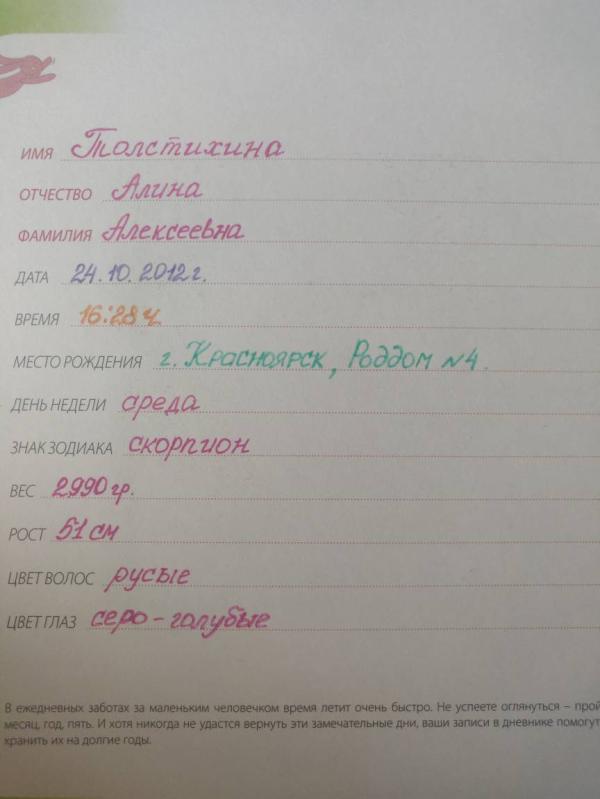 ИМЯ Толстихина
ОТЧЕСТВО Алина
ФАМИЛИЯ Алексеевна
ДАТА 24.10.2012 г.
ВРЕМЯ 16:28 ч
МЕСТО РОЖДЕНИЯ г. Красноярск, Роддом №4.
ДЕНЬ НЕДЕЛИ среда
ЗНАК ЗОДИАКА скорпион
ВЕС 2990 гр.
РОСТ 51 см
ЦВЕТ ВОЛОС русые
ЦВЕТ ГЛАЗ серо-голубые
В ежедневных заботах за маленьким человечком время летит очень быстро. Не успеете оглянуться – прой
месяц, год, пять. И хотя никогда не удастся вернуть эти замечательные дни, ваши записи в дневнике помогут
хранить их на долгие годы.